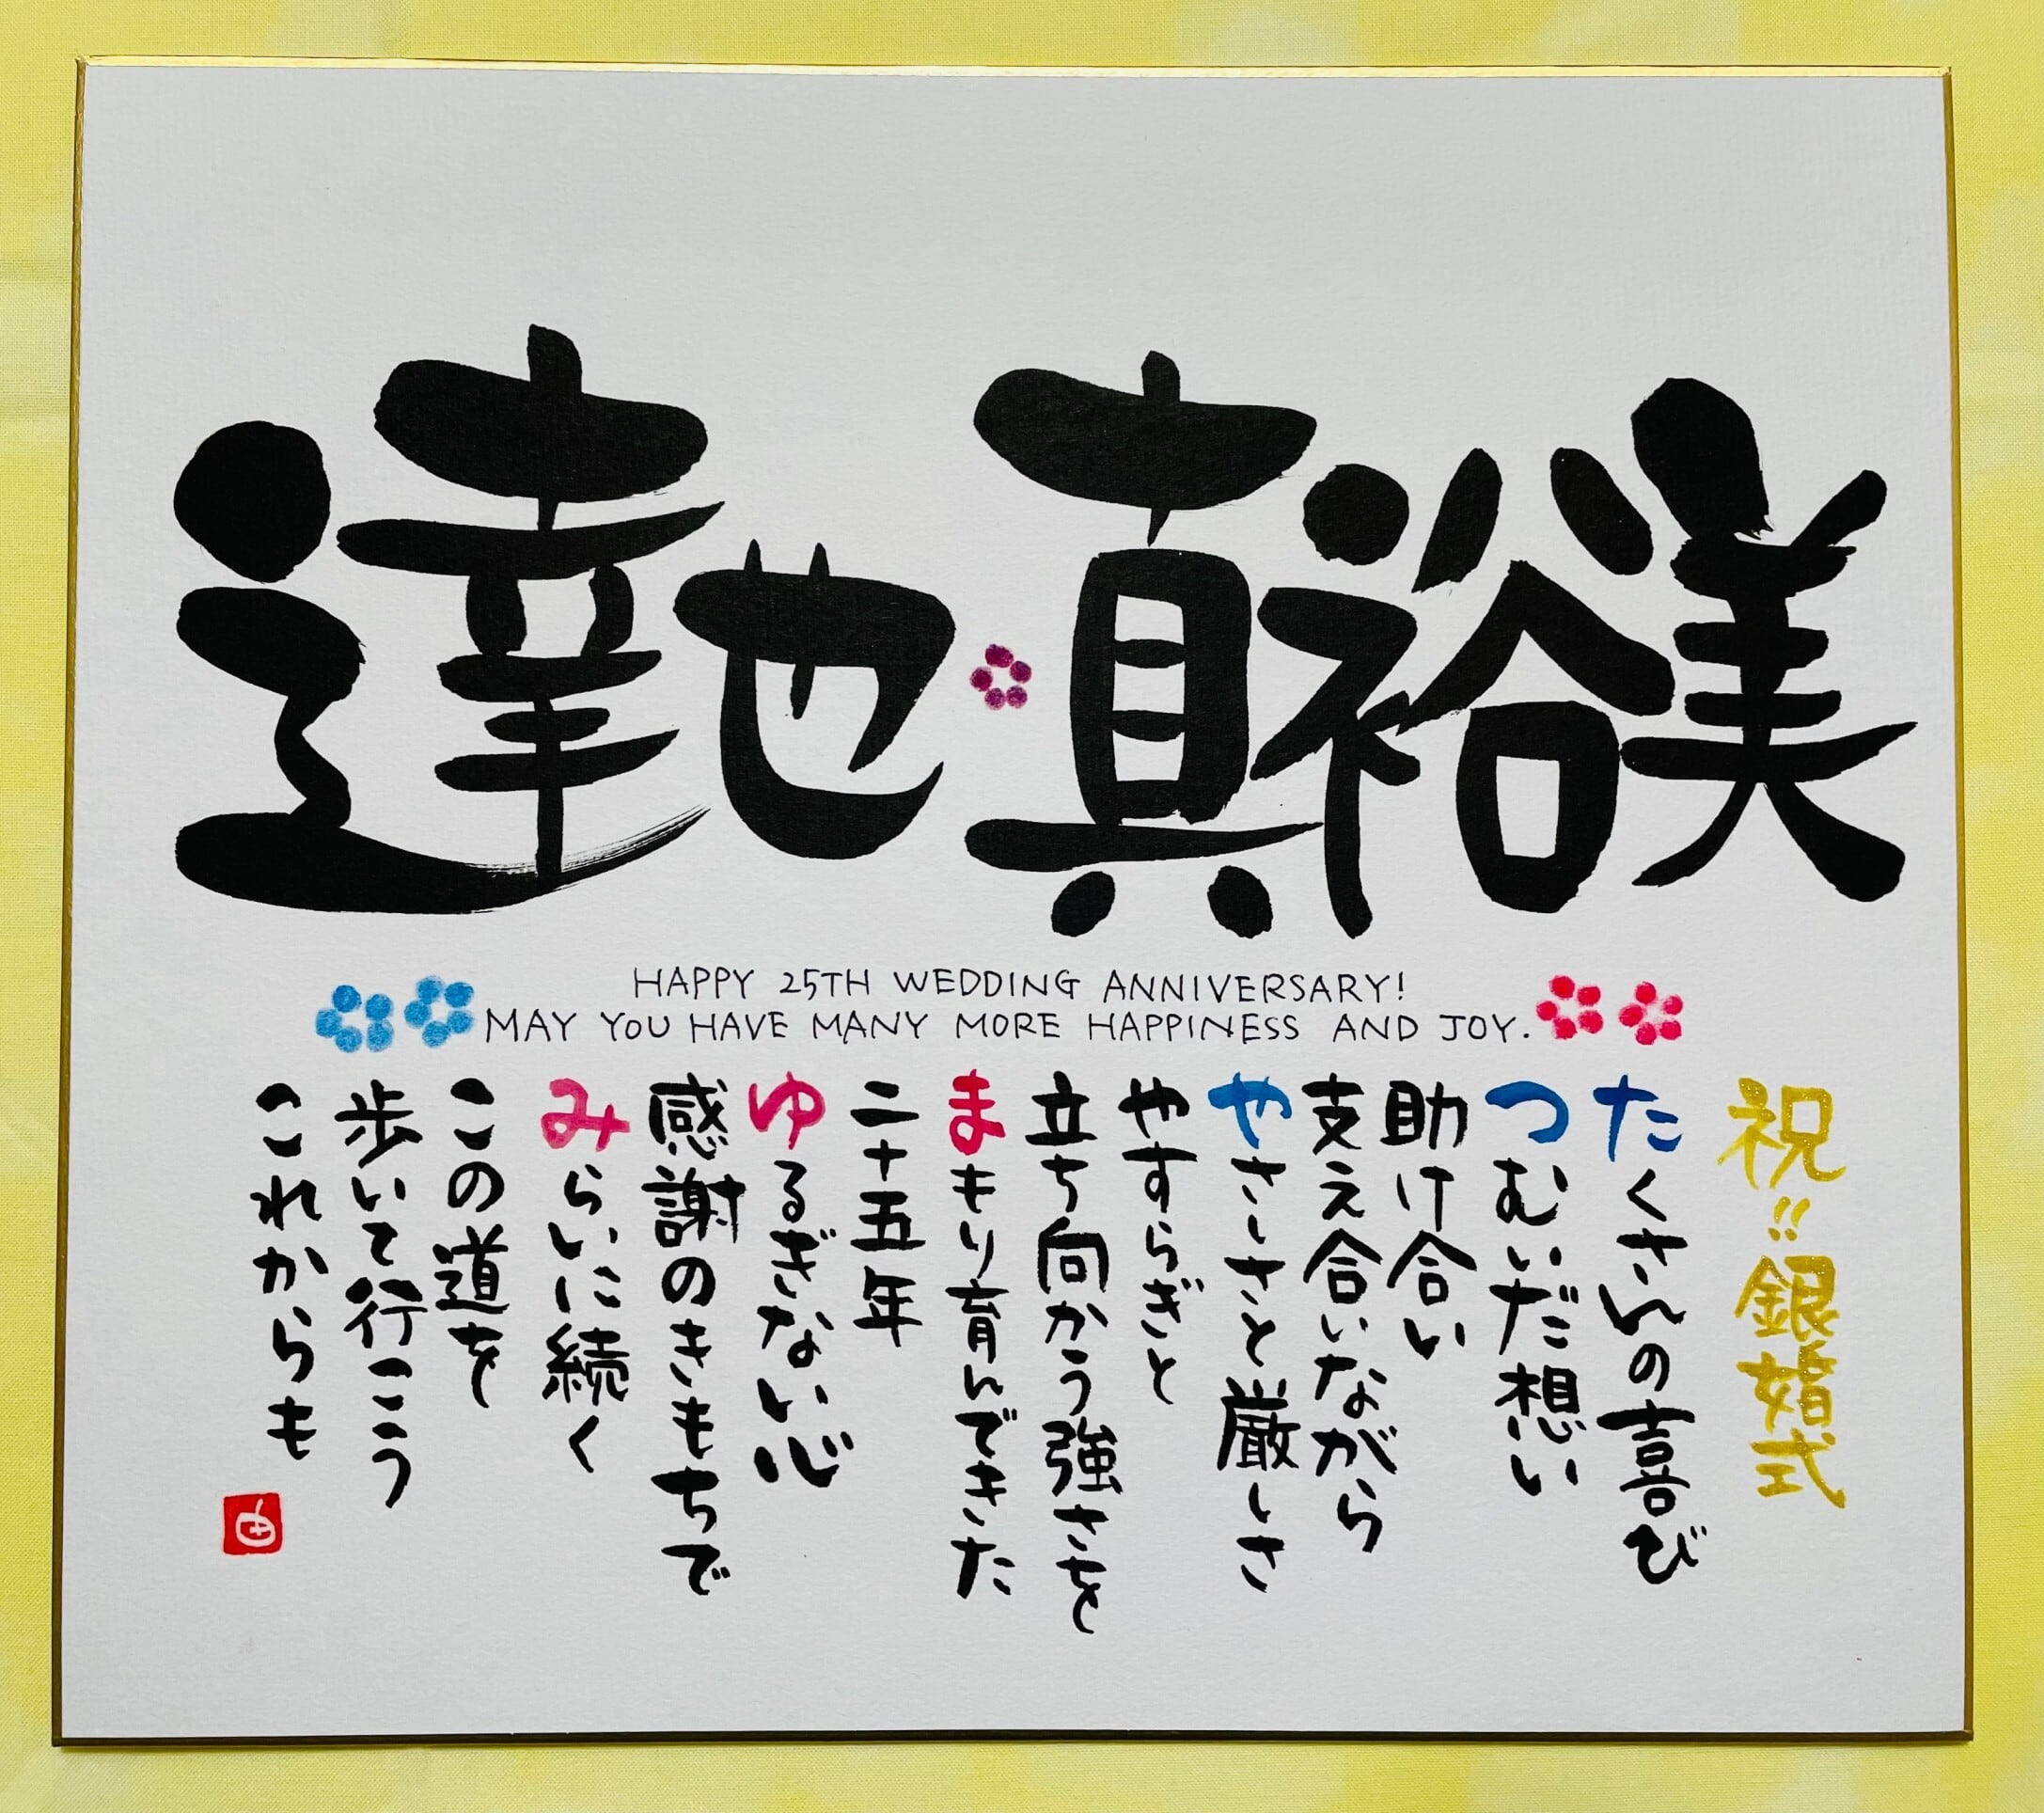 達也 真裕美
HAPPY 25TH WEDDING ANNIVERSARY!
MAY YOU HAVE MANY MORE HAPPINESS AND JOY.
祝!!銀婚式
たくさんの喜び
つむいだ想い
助け合い
支え合いながら
やさしさと厳しさ
やすらぎと
立ち向かう強さを
まもり育んできた
二十五年
ゆるぎない心
感謝のきもちで
みらいに続く
この道を
歩いて行こう
これからも